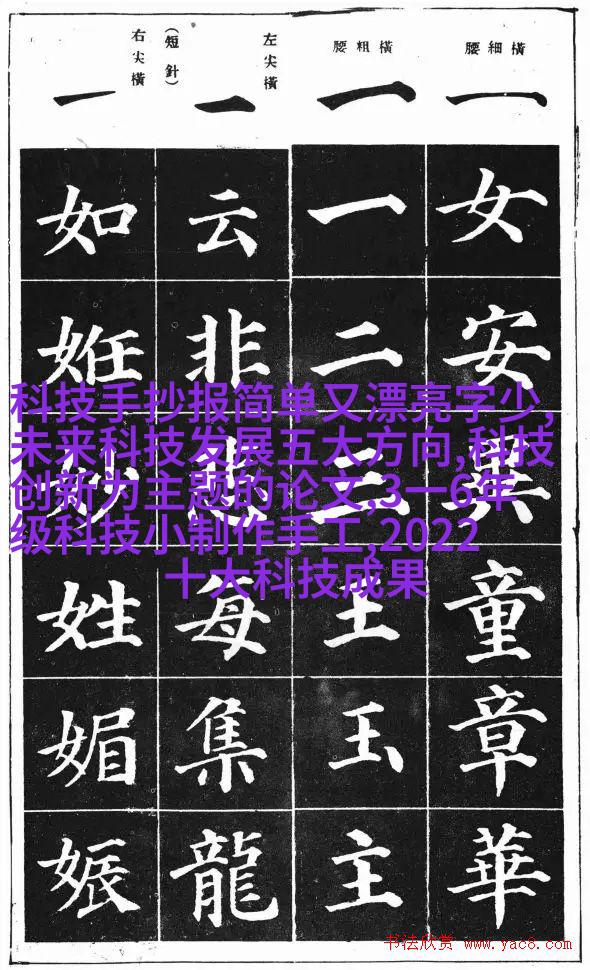 橫細腰
一
女安異童章華
橫粗腰
一
一二三王玉主
左尖橫
(短針)
一
云非悲每集龍
右尖橫
一
如姙妙姓媚娠
科技手抄报简单又漂亮字少,
未来科技发展五大方向,科技
创新为主题的论文,3一6年
级科技小制作手工,2022
十大科技成果
书法欣赏 www.yac8.com